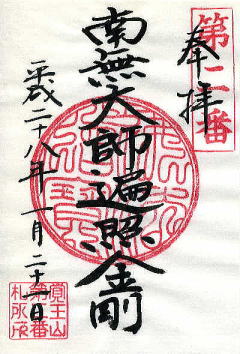 第二番
奉拝
南無大師遍照金剛
平成二十八年一月二十一日
覚王山
第二番
札所之印